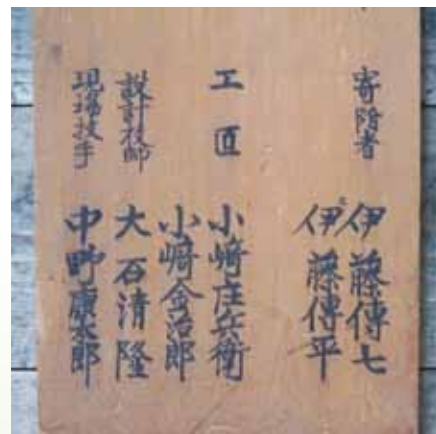 寄附者 伊藤傳七
伊藤傳平
工匠 小崎庄兵衛
小崎金治郎
設計技師 大石清隆
現場技手 中野康太郎